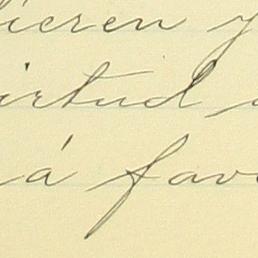 ieren y
irtud
á fav